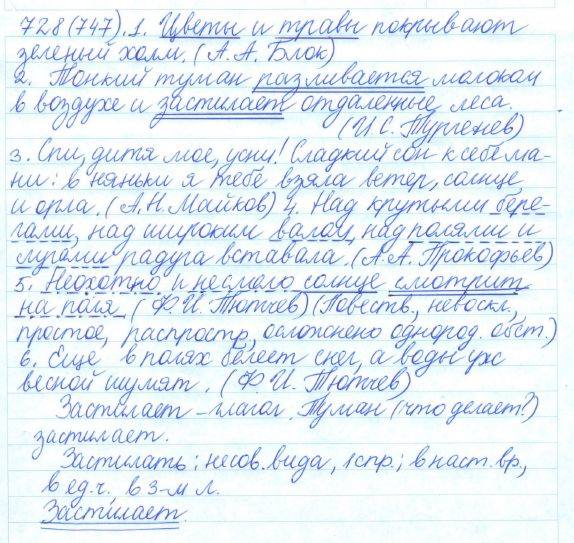 728(747). 1. Цветы и травы покрывают
зеленый холм. (А. А. Блок)
2. Тонкий туман разливается молоком
в воздухе и застилает отдаленные леса.
(И. С. Тургенев)
3. Спи, дитя мое, усни! Сладкий сон к себе ма-
ни: в няньки я тебе взяла ветер, солнце
и орла. (А. Н. Майков) 4. Над крутыми бере-
гами, над широким валом, над полями и
лугами радуга вставала. (А. А. Прокофьев)
5. Неохотно и несмело солнце смотрит
на поля. (Ф. И. Тютчев) (Повеств., невоскл.,
простое, распростр., осложнено однород. обст.)
6. Еще в полях белеет снег, а воды уж
весной шумят. (Ф. И. Тютчев)
Застилает – глагол. Туман (что делает?)
застилает.
Застилать: несов. вида, 1 спр.; в наст. вр.,
в ед. ч., в 3-м л.
Застилает.